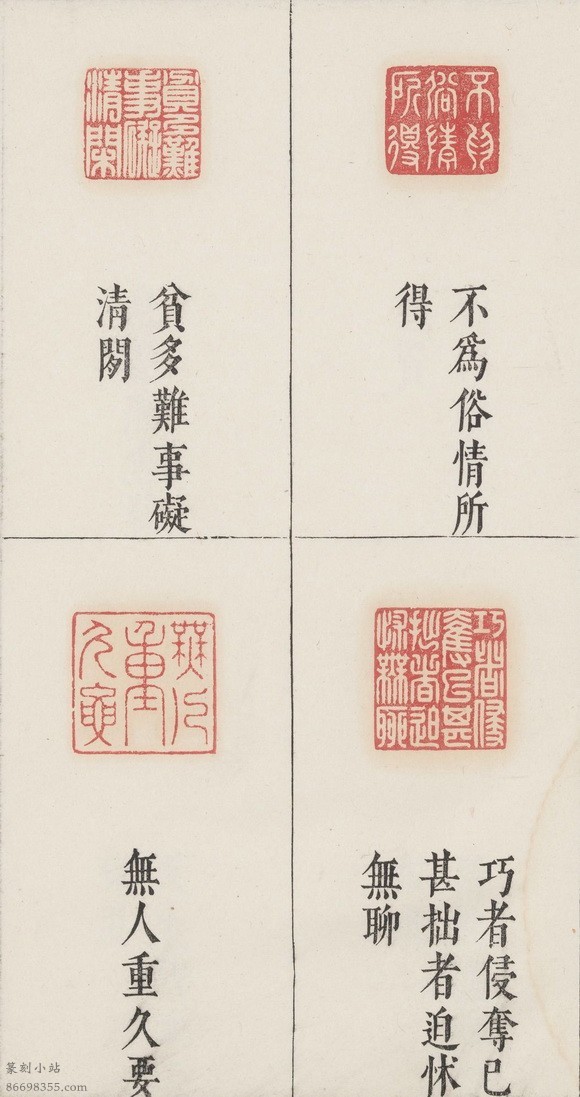 不爲俗情所
得
貧多難事礙
清閒
巧者侵奪已
甚拙者迫怵
無聊
無人重久要
篆刻小站
86698355.com